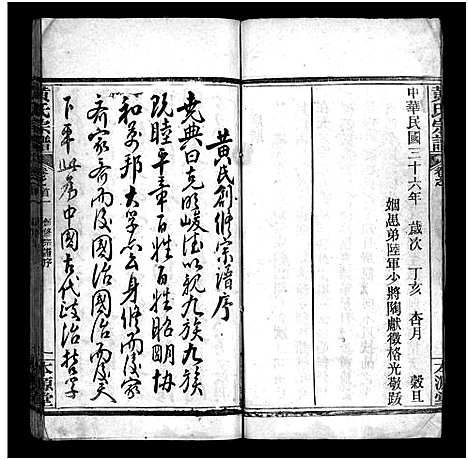 黃氏宗譜
本源堂
中華民國三十六年 歲次 丁亥 杏月 穀旦
姻愚弟陸軍少將陶獻徵格光敬跋
黄氏創修宗譜序
堯典曰克明峻德以親九族九族
既睦平章百姓百姓昭明協
和萬邦大學云身修而後家
齊家齊而後國治國治而後天
下平此為中國古代政治哲學
黃氏宗譜
卷之首
創修宗譜序
一
本源堂